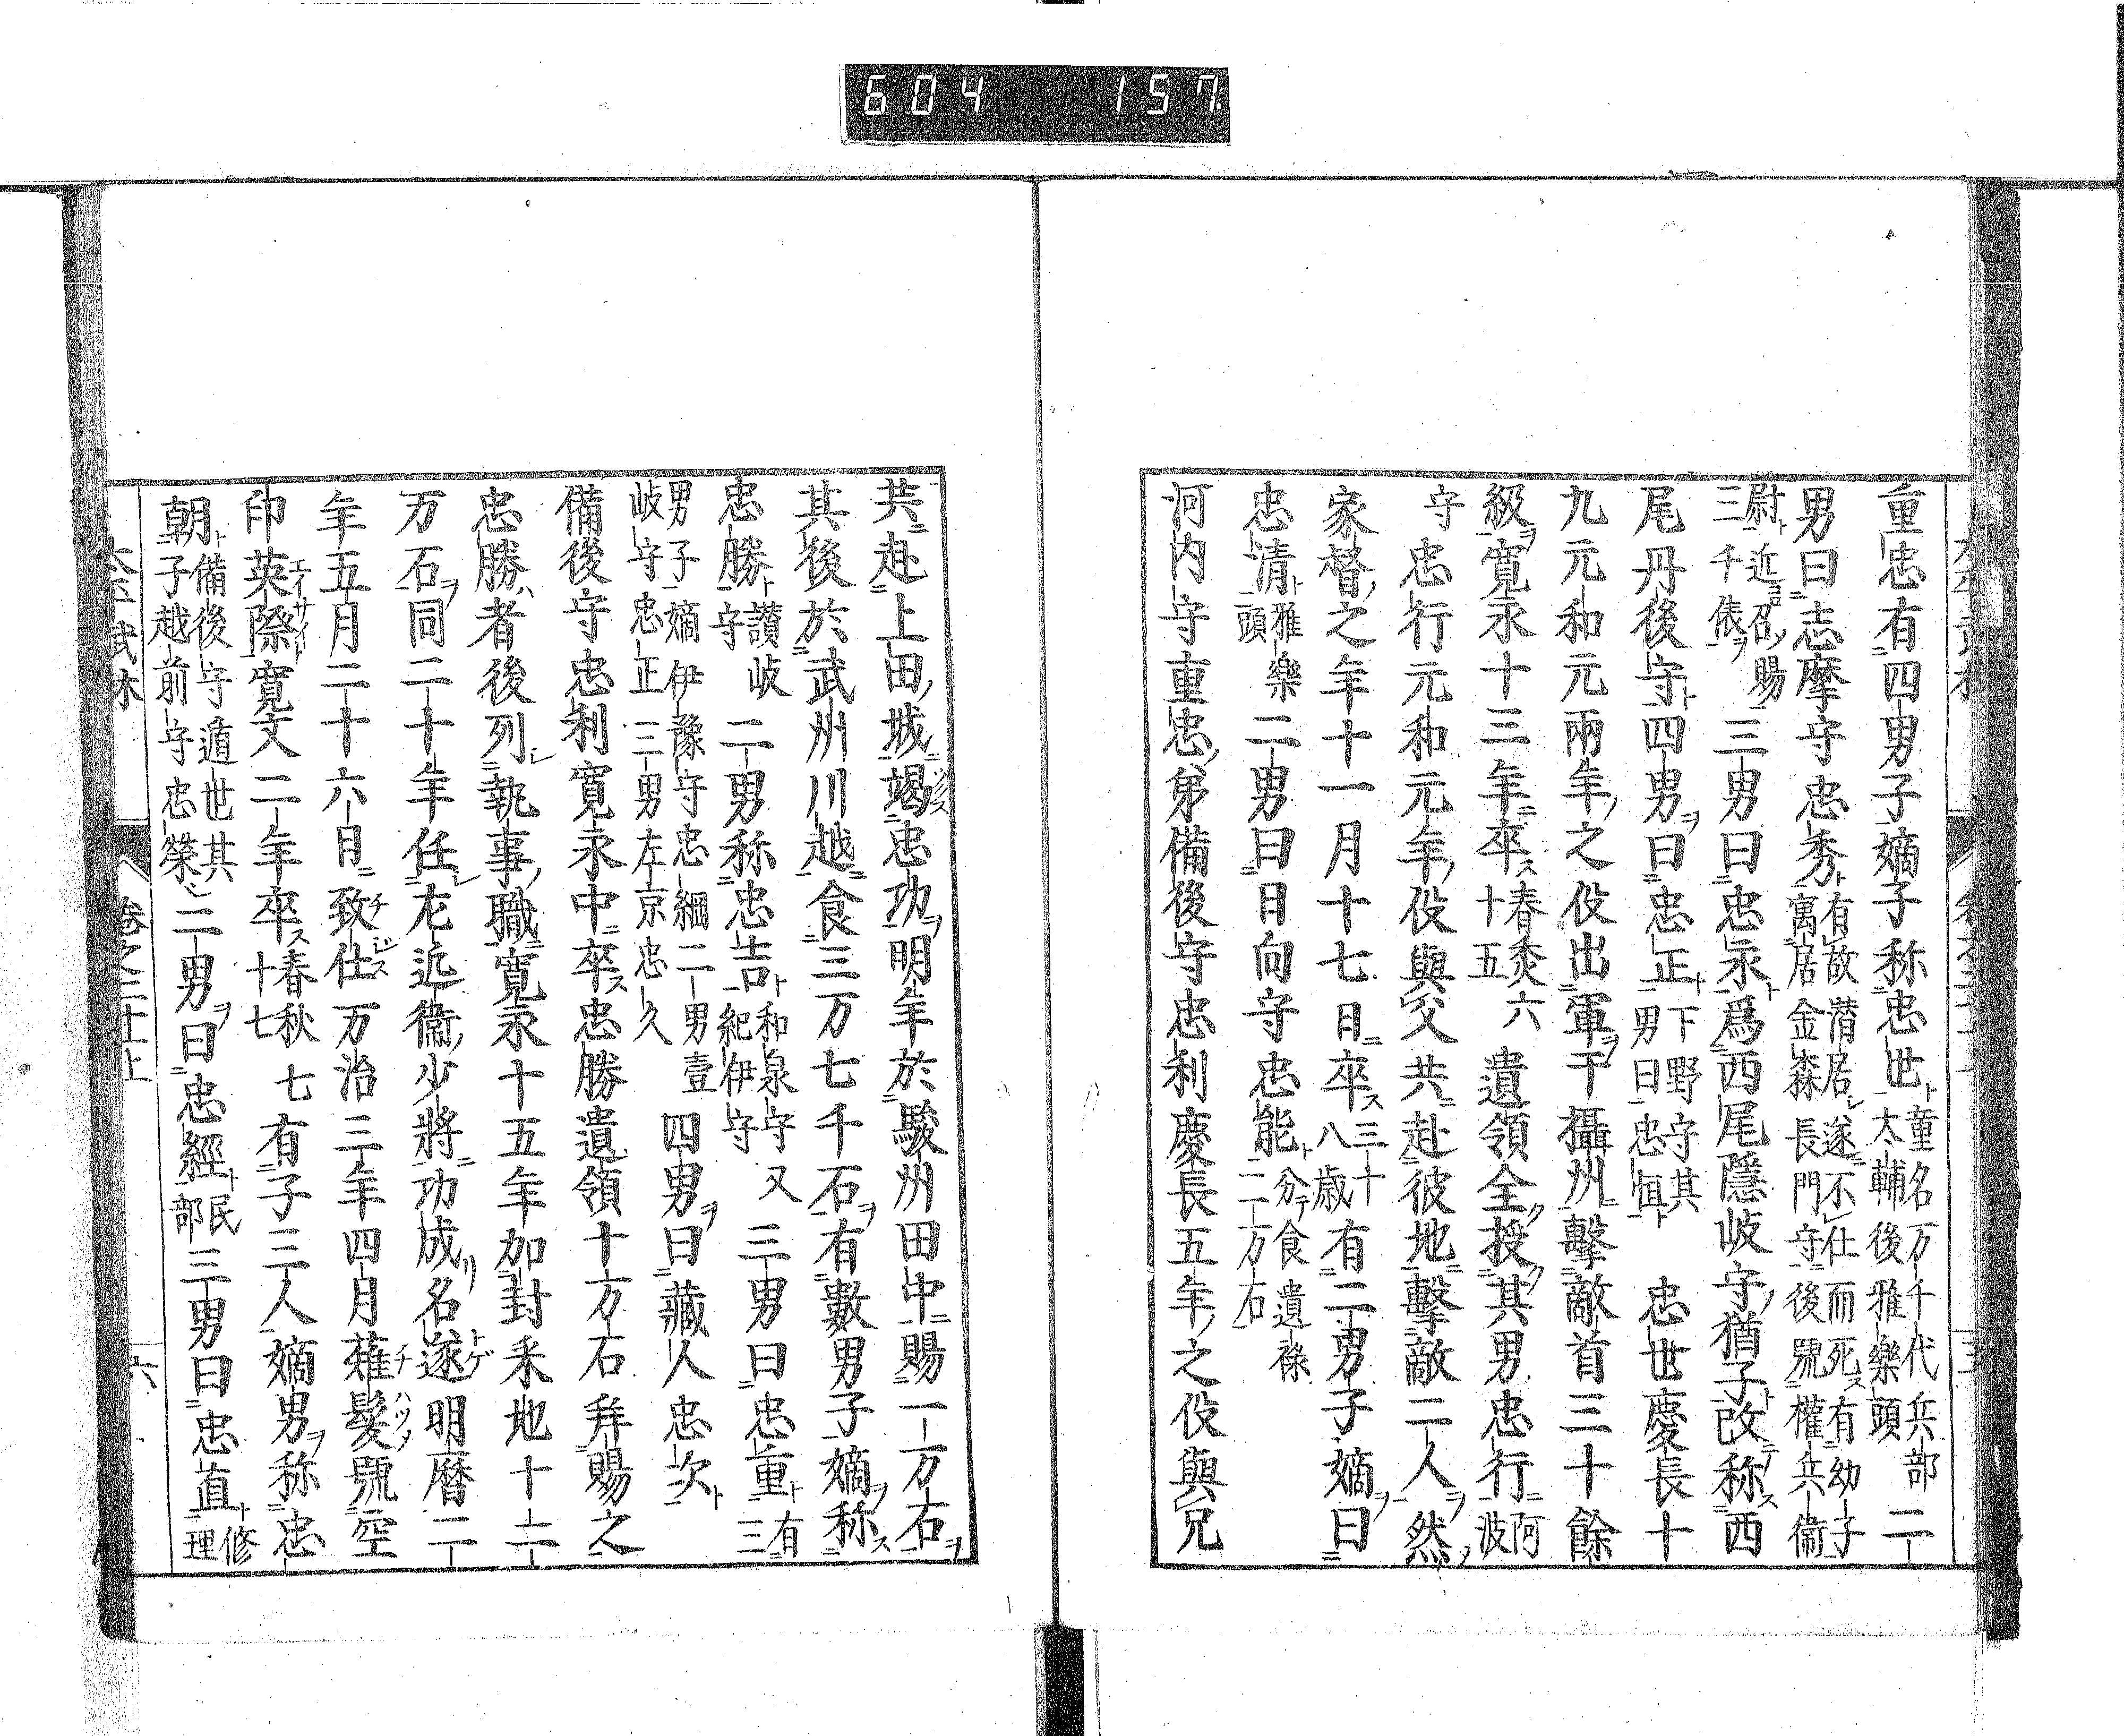 604 157
重忠有四男子嫡子称忠世童名万千代兵部太輔後雅樂頭二
男曰志摩守忠秀有故潜居遂不仕而死有幼子寓居金森長門守後號權兵衞
尉近召賜三千俵三男曰忠永爲西尾隱岐守猶子改称西
尾丹後守四男曰忠正下野守其男曰忠恒忠世慶長十
九元和元兩年之役出軍于攝州擊敵首三十餘
級寛永十三年卒春秋六十五遺領全授其男忠行阿波
守忠行元和元年役與父共赴彼地擊敵二人然
家督之年十一月十七日卒三十八歳有二男子嫡曰
忠清雅樂頭二男曰日向守忠能分食遺祿二万石
河内守重忠弟備後守忠利慶長五年之役與兄
共赴上田城竭忠功明年於駿州田中賜一万石
其後於武州川越食三万七千石有數男子嫡称
忠勝讃岐守二男称忠吉和泉守又紀伊守三男曰忠重有三
男子嫡伊豫守忠綱二男壹岐守忠正三男左京忠久四男曰藏人忠次
備後守忠利寛永中卒忠勝遺領十万石拜賜之
忠勝者後列執事職寛永十五年加封釆地十二
万石同二十年任左近衞少將功成名遂明暦二
年五月二十六日致仕万治三年四月薙髮號空
印英際寛文二年卒春秋七十七有子三人嫡男称忠
朝備後守遁世其子越前守忠榮二男曰忠經民部三男曰忠直修理
太平武林 卷之三十上 六